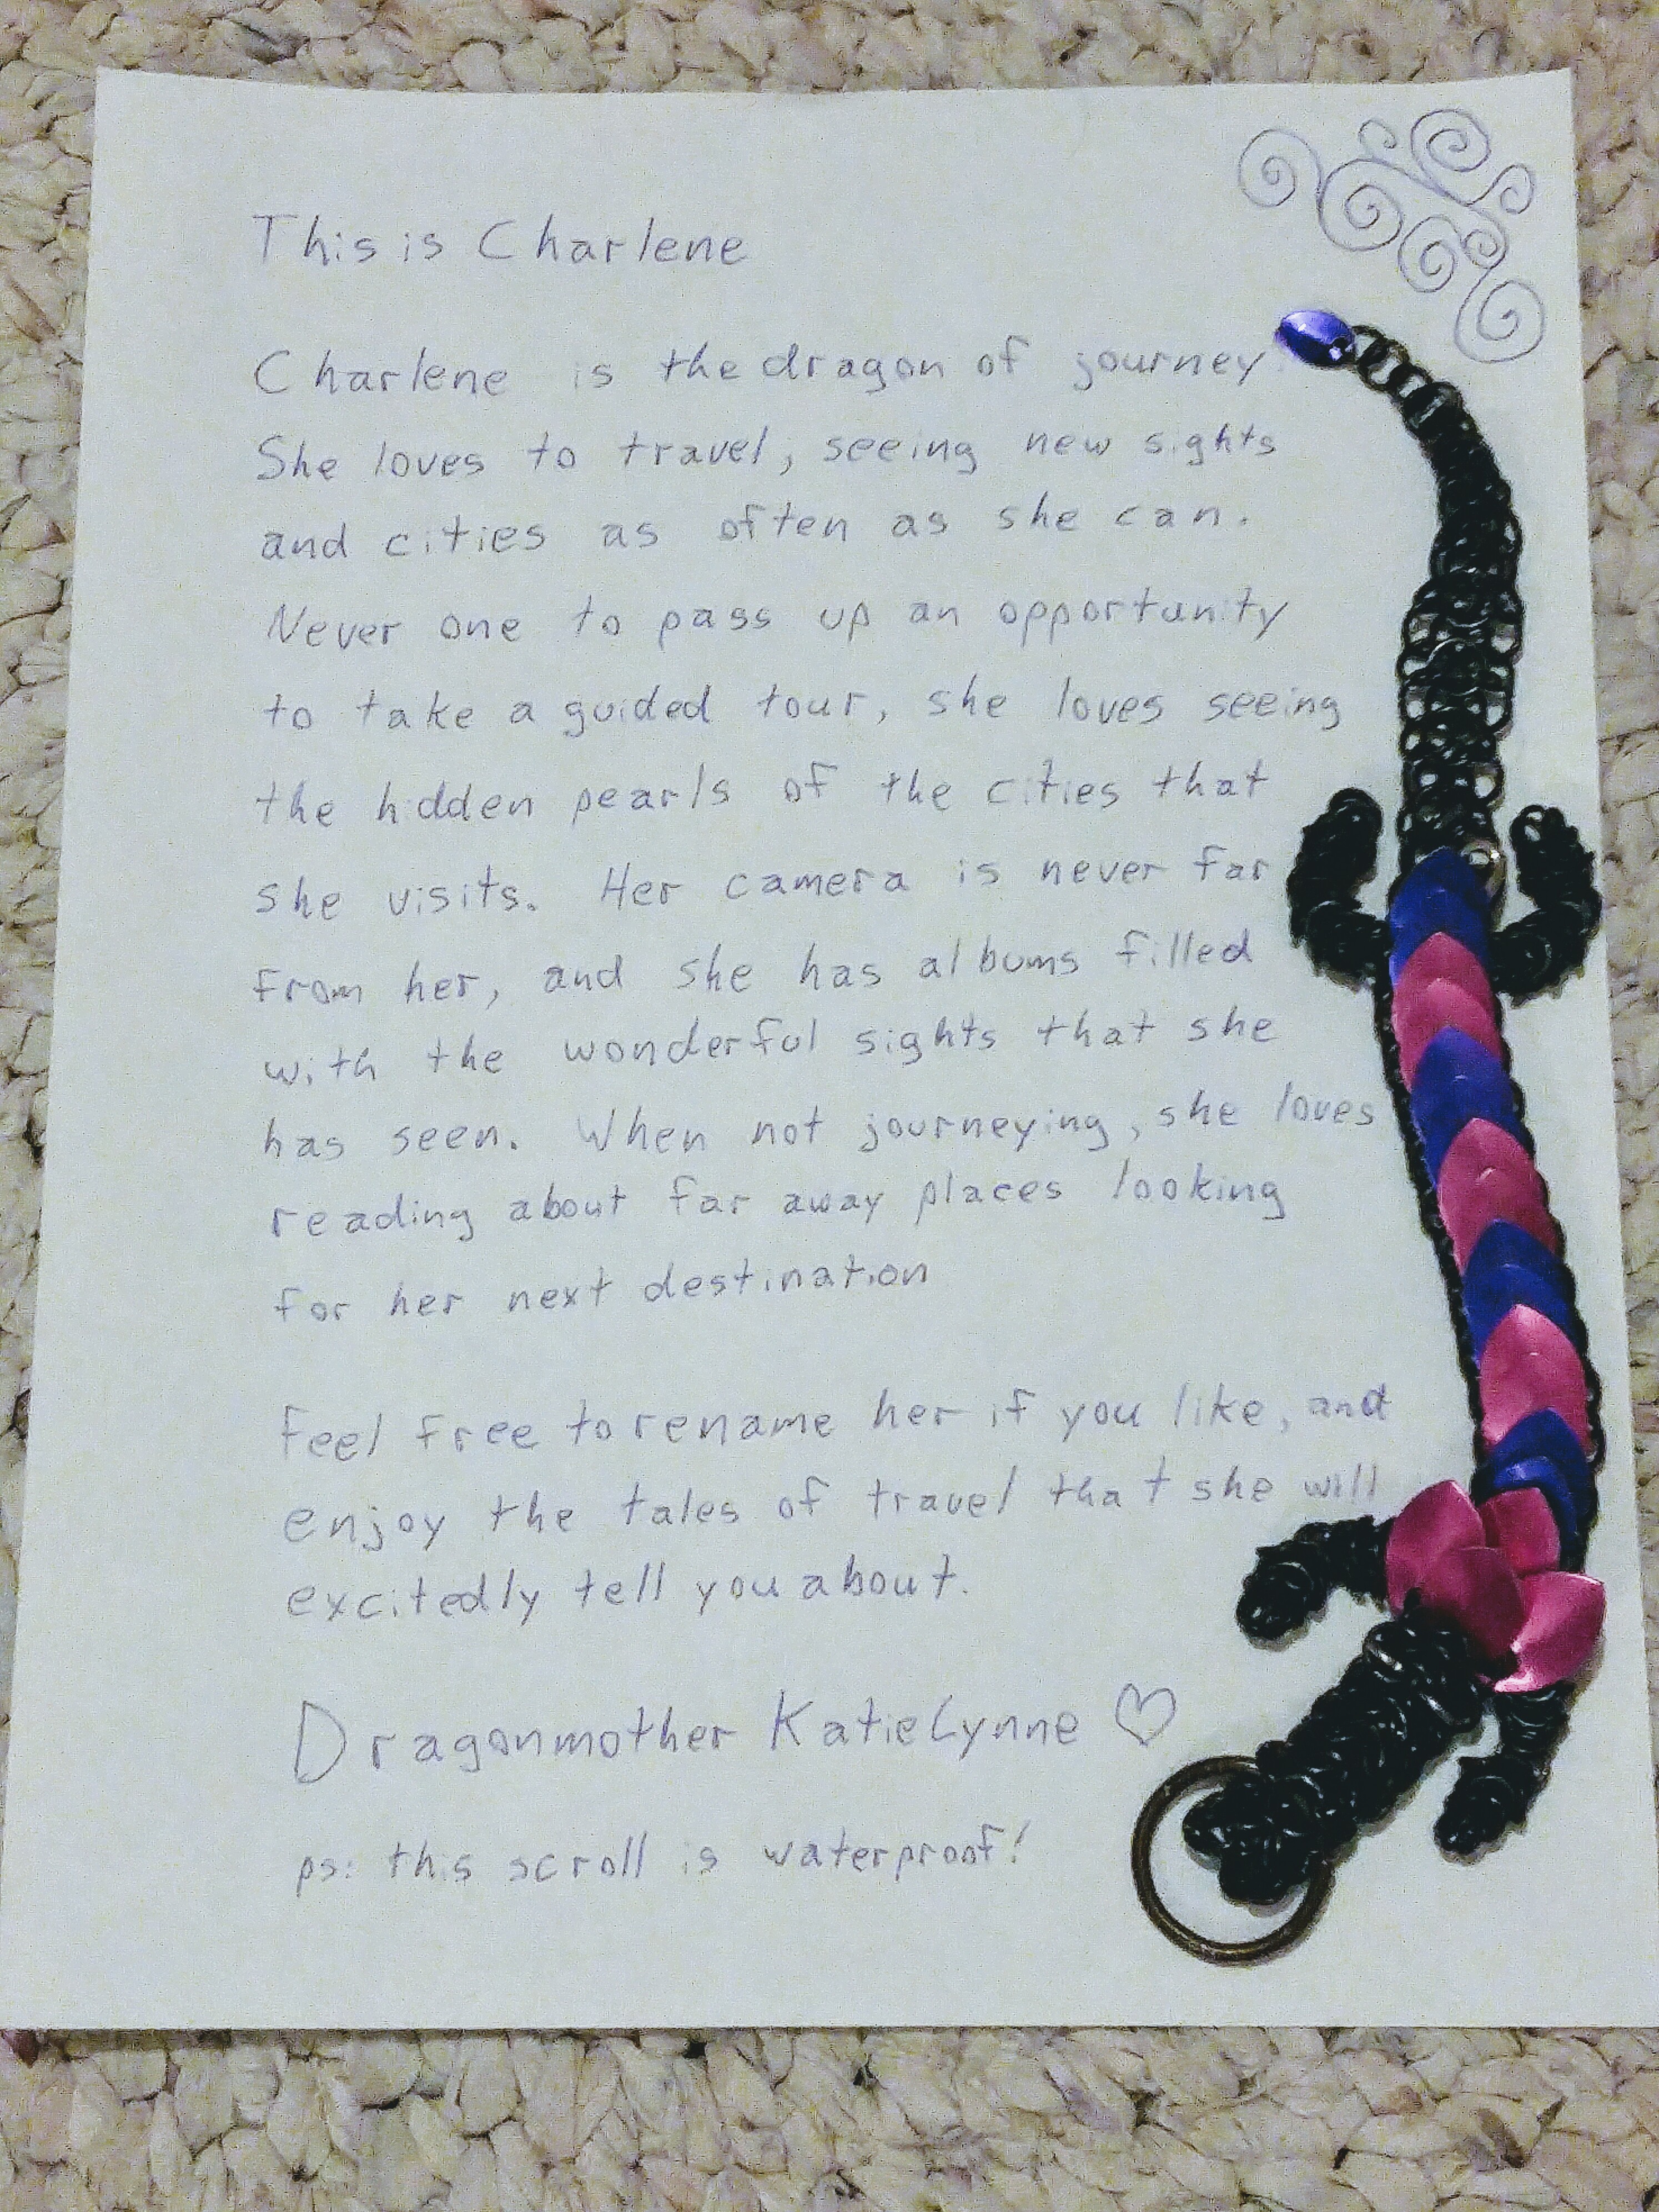 This is Charlene
Charlene is the dragon of journey.
She loves to travel, seeing new sights
and cities as often as she can.
Never one to pass up an opportunity
to take a guided tour, she loves seeing
the hidden pearls of the cities that
she visits. Her camera is never far
from her, and she has albums filled
with the wonderful sights that she
has seen. When not journeying, she loves
reading about far away places looking
for her next destination
Feel free to rename her if you like, and
enjoy the tales of travel that she will
excitedly tell you about.
Dragonmother KatieLynne ♡
ps: this scroll is waterproof!